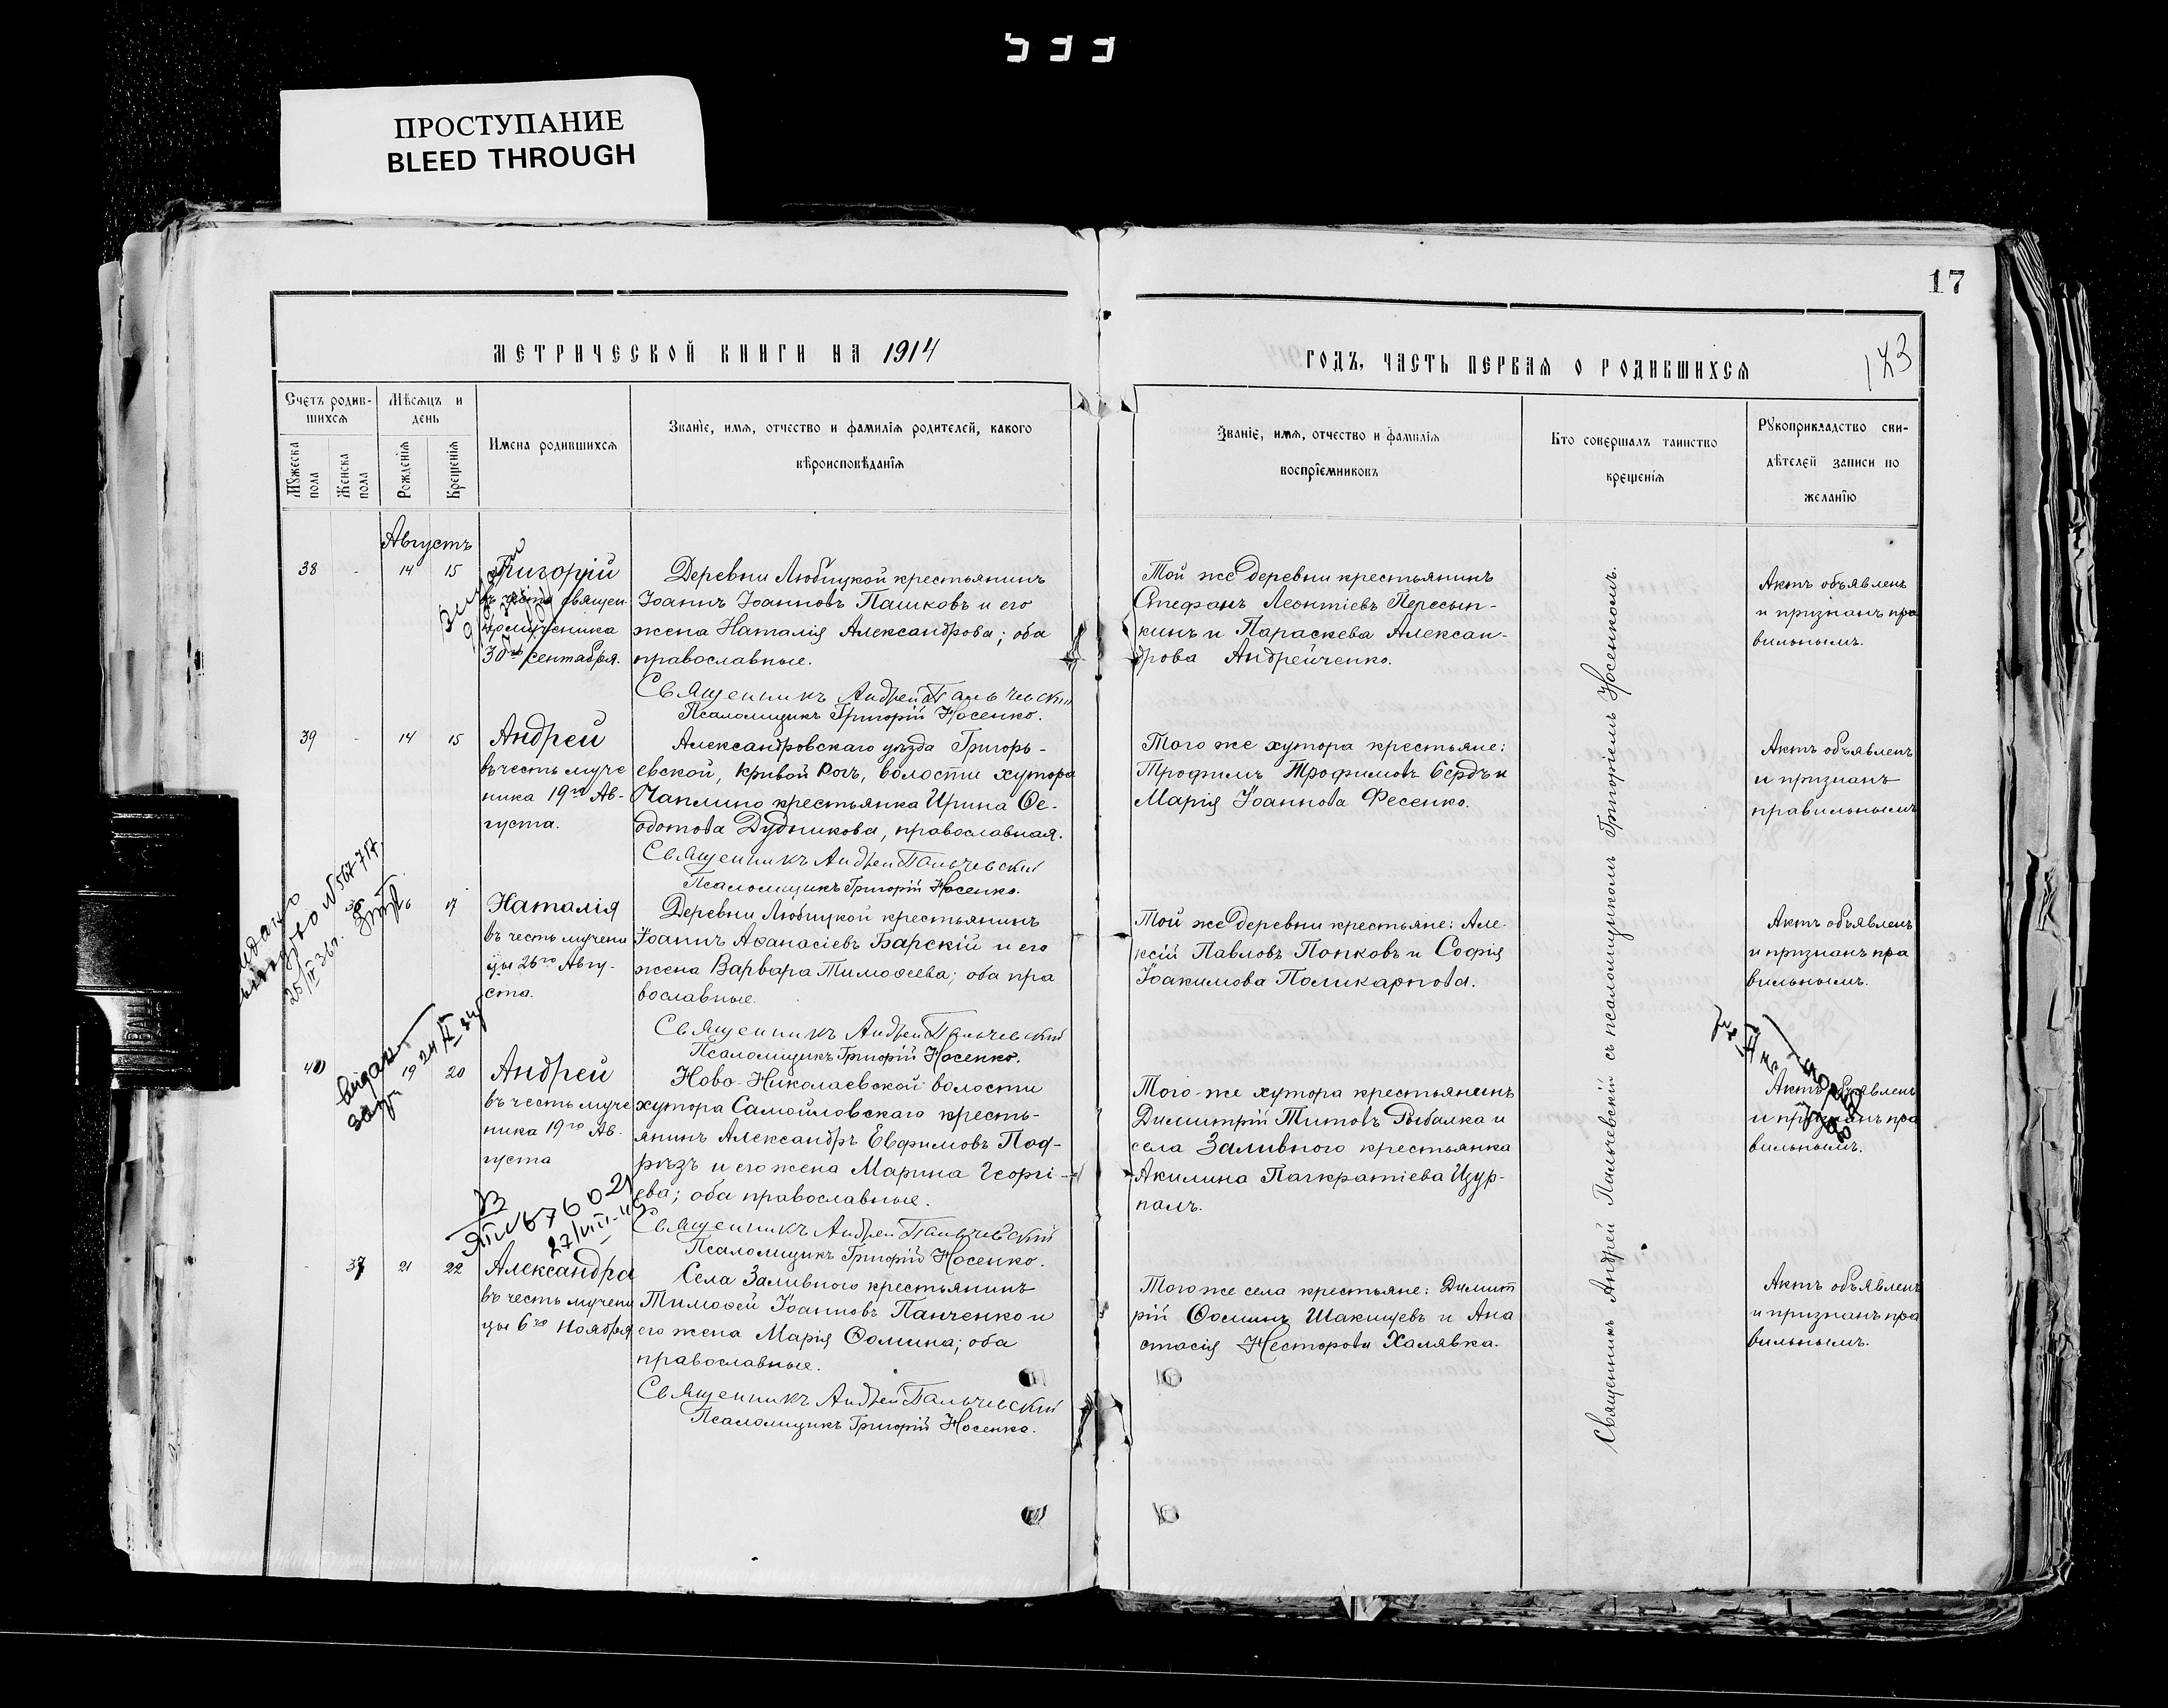 ПРОСТУПАНИЕ
BLEED THROUGH
17
МЕТРИЧЕСКОЙ КНИГИ НА 1914
ГОДЪ, ЧАСТЬ ПЕРВАЯ О РОДИВШИХСЯ
123
Счетъ родив-
шихся
Мужеска пола
Женска пола
Мѣсяцъ и
день
Рожденія
Крещенія
Имена родившихся
Званіе, имя, отчество и фамилія родителей, какого
вѣроисповѣданія
Званіе, имя, отчество и фамилія
воспріемниковъ
Кто совершалъ таинство
крещенія
Рукоприкладство сви-
дѣтелей записи по
желанію
Августъ
38 - 14 15
Григорій
въ честь священ-
номученика
30го сентября.
Деревни Любицкой крестьянинъ
Іоаннъ Іоанновъ Пашковъ и его
жена Наталія Александрова; оба
православные.
Священникъ Андрей Пальчевскій
Псаломщикъ Григорій Носенко.
Той же деревни крестьянинъ
Стефанъ Леонтіевъ Пересып-
кинъ и Параскева Алексан-
дрова Андрейченко.
Актъ объявленъ
и признанъ пра
вильнымъ.
39 - 14 15
Андрей
въ честь муче
ника 19го Ав-
густа.
Александровскаго уѣзда Григорь-
евской, Кривой Рогъ, волости хутора
Чаплино крестьянка Ирина Ѳе-
одотова Дудникова, православная.
Священникъ Андрей Пальчевскій
Псаломщикъ Григорій Носенко.
Того же хутора крестьяне:
Трофимъ Трофимовъ Бердъ и
Марія Іоаннова Фесенко.
Актъ объявленъ
и признанъ
правильнымъ
36 17
Наталія
въ честь мучени
цы 26го Авгу-
ста.
Деревни Любицкой крестьянинъ
Іоаннъ Аѳанасіевъ Барскій и его
жена Варвара Тимоѳеева; оба пра
вославные.
Священникъ Андрей Пальчевскій
Псаломщикъ Григорій Носенко.
Той же деревни крестьяне: Але-
ксій Павловъ Попковъ и Софія
Іоакимова Поликарпова.
Актъ объявленъ
и признанъ пра
вильнымъ.
40 19 20
Андрей
въ честь муче
ника 19го Ав-
густа
Ново-Николаевской волости
хутора Самойловскаго кресть-
янинъ Александръ Евфимовъ Под-
рѣзъ и его жена Марина Георгі-
ева; оба православные.
Священникъ Андрей Пальчевскій
Псаломщикъ Григорій Носенко.
Того-же хутора крестьянинъ
Димитрій Титовъ Рыбалка и
села Заливного крестьянка
Акилина Панкратіева Цур-
палъ.
Актъ объявленъ
и признанъ пра
вильнымъ.
- 37 21 22
Александра
въ честь мучени
цы 6го Ноября
Села Заливного крестьянинъ
Тимоѳей Іоанновъ Панченко и
его жена Марія Ѳомина; оба
православные.
Священникъ Андрей Пальчевскій
Псаломщикъ Григорій Носенко.
Того же села крестьяне: Димит
рій Ѳоминъ Шакищевъ и Ана
стасія Несторова Халявка.
Актъ объявленъ
и признанъ пра
вильнымъ.
Священникъ Андрей Пальчевскій съ псаломщикомъ Григоріемъ Носенкомъ.
27/VIII-40